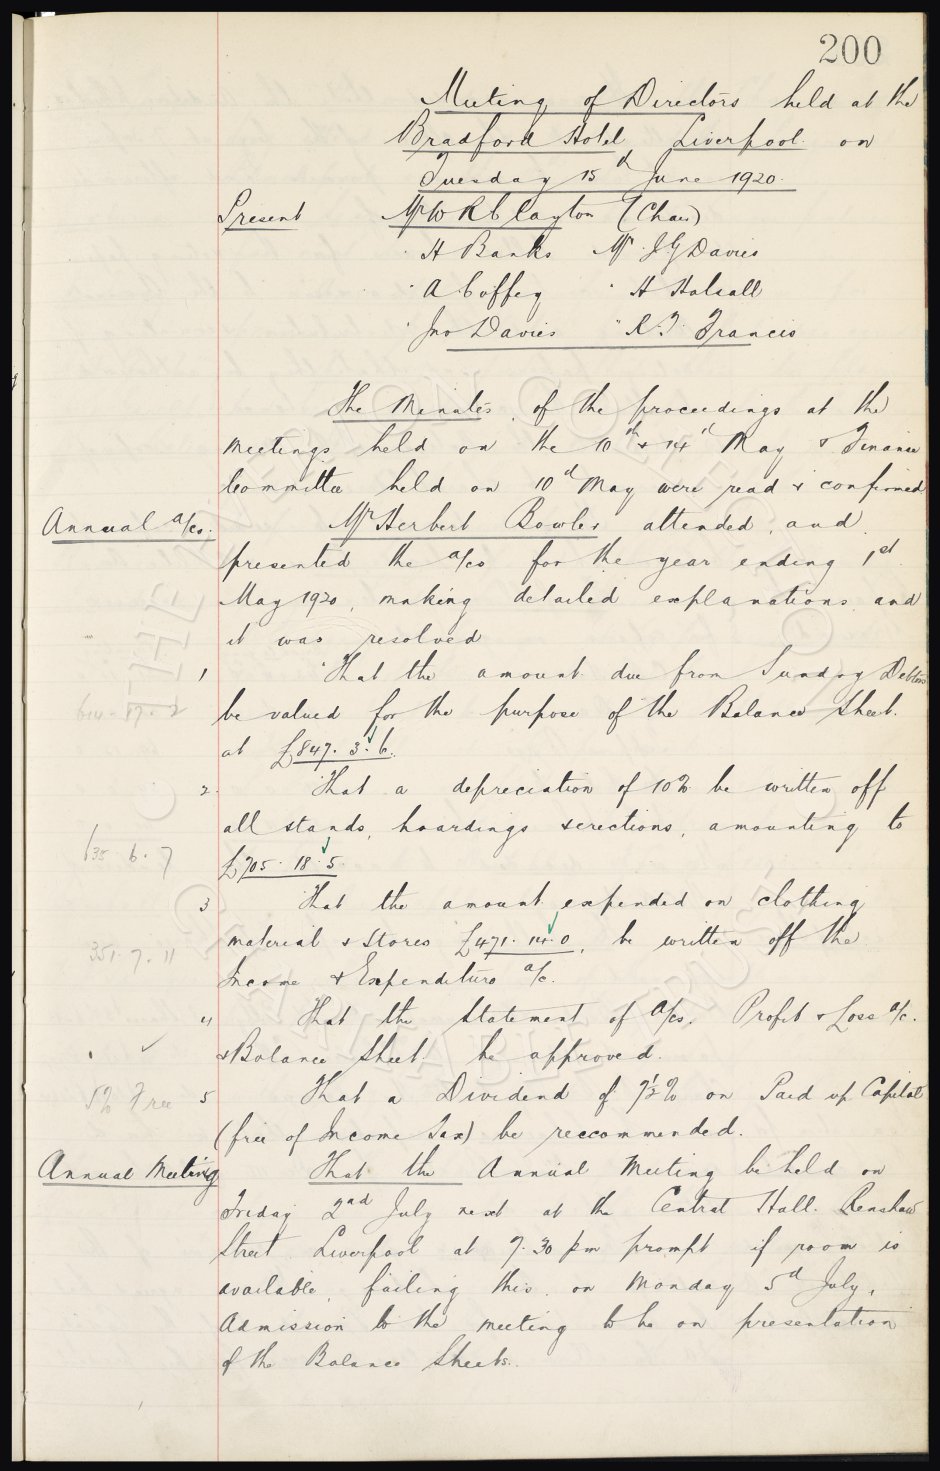 200
Meeting of Directors held at the
Bradford Hotel, Liverpool on
Tuesday 15th June 1920.
Present Mr W R Clayton (Chair)
" H Banks Mr J G Davies
" A Coffey " H Halsall
" Jno Davies " R. T. Francis
The Minutes of the proceedings at the
meetings held on the 10th & 14th May & Finance
Committee held on 10th May were read & confirmed
Annual a/cs. Mr Herbert Bowler attended and
presented the a/cs for the year ending 1st
May 1920, making detailed explanations and
it was resolved
1 That the amount due from Sundry Debtors
614 . 17 . 2 be valued for the purpose of the Balance Sheet
at £847. 3. 6.
2. That a depreciation of 10% be written off
all stands, hoardings & erections, amounting to
635 . 6 . 7 £705. 18. 5.
3 That the amount expended on clothing
351 . 7 . 11 material & Stores £471. 14. 0, be written off the
Income & Expenditure a/c.
4 That the Statement of a/cs. Profit & Loss a/c.
& Balance Sheet be approved.
5% Free 5 That a Dividend of 7½% on Paid up Capital
(free of Income Tax) be reccommended.
Annual Meeting That the Annual Meeting be held on
Friday 2nd July next at the Central Hall. Renshaw
Street Liverpool at 7.30 pm prompt if room is
available, failing this, on Monday 5th July,
Admission to the meeting to be on presentation
of the Balance Sheets.